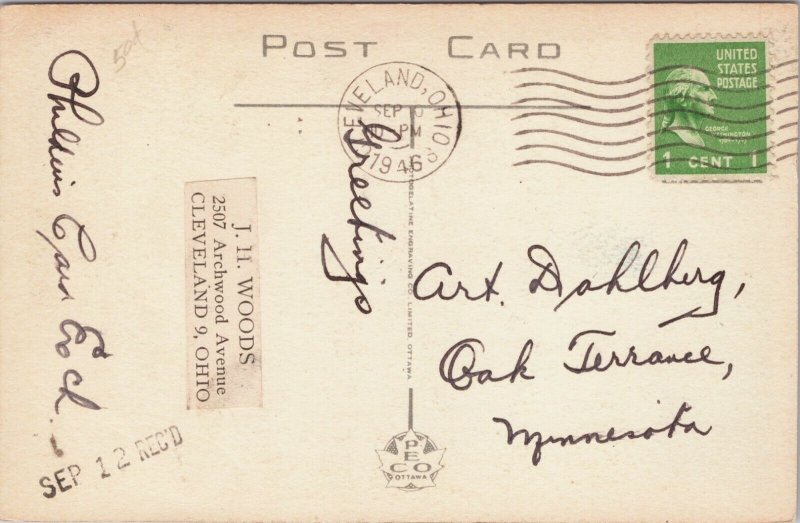 POST CARD
CLEVELAND, OHIO
SEP 10
PM
1946
UNITED
STATES
POSTAGE
GEORGE
WASHINGTON
1 CENT 1
Greetings
J. H. WOODS
2507 Archwood Avenue
CLEVELAND 9, OHIO
Art. Dahlberg,
Oak Terrace,
Minnesota
PHOTOGELATINE ENGRAVING CO. LIMITED OTTAWA
PECO
OTTAWA
SEP 12 REC'D